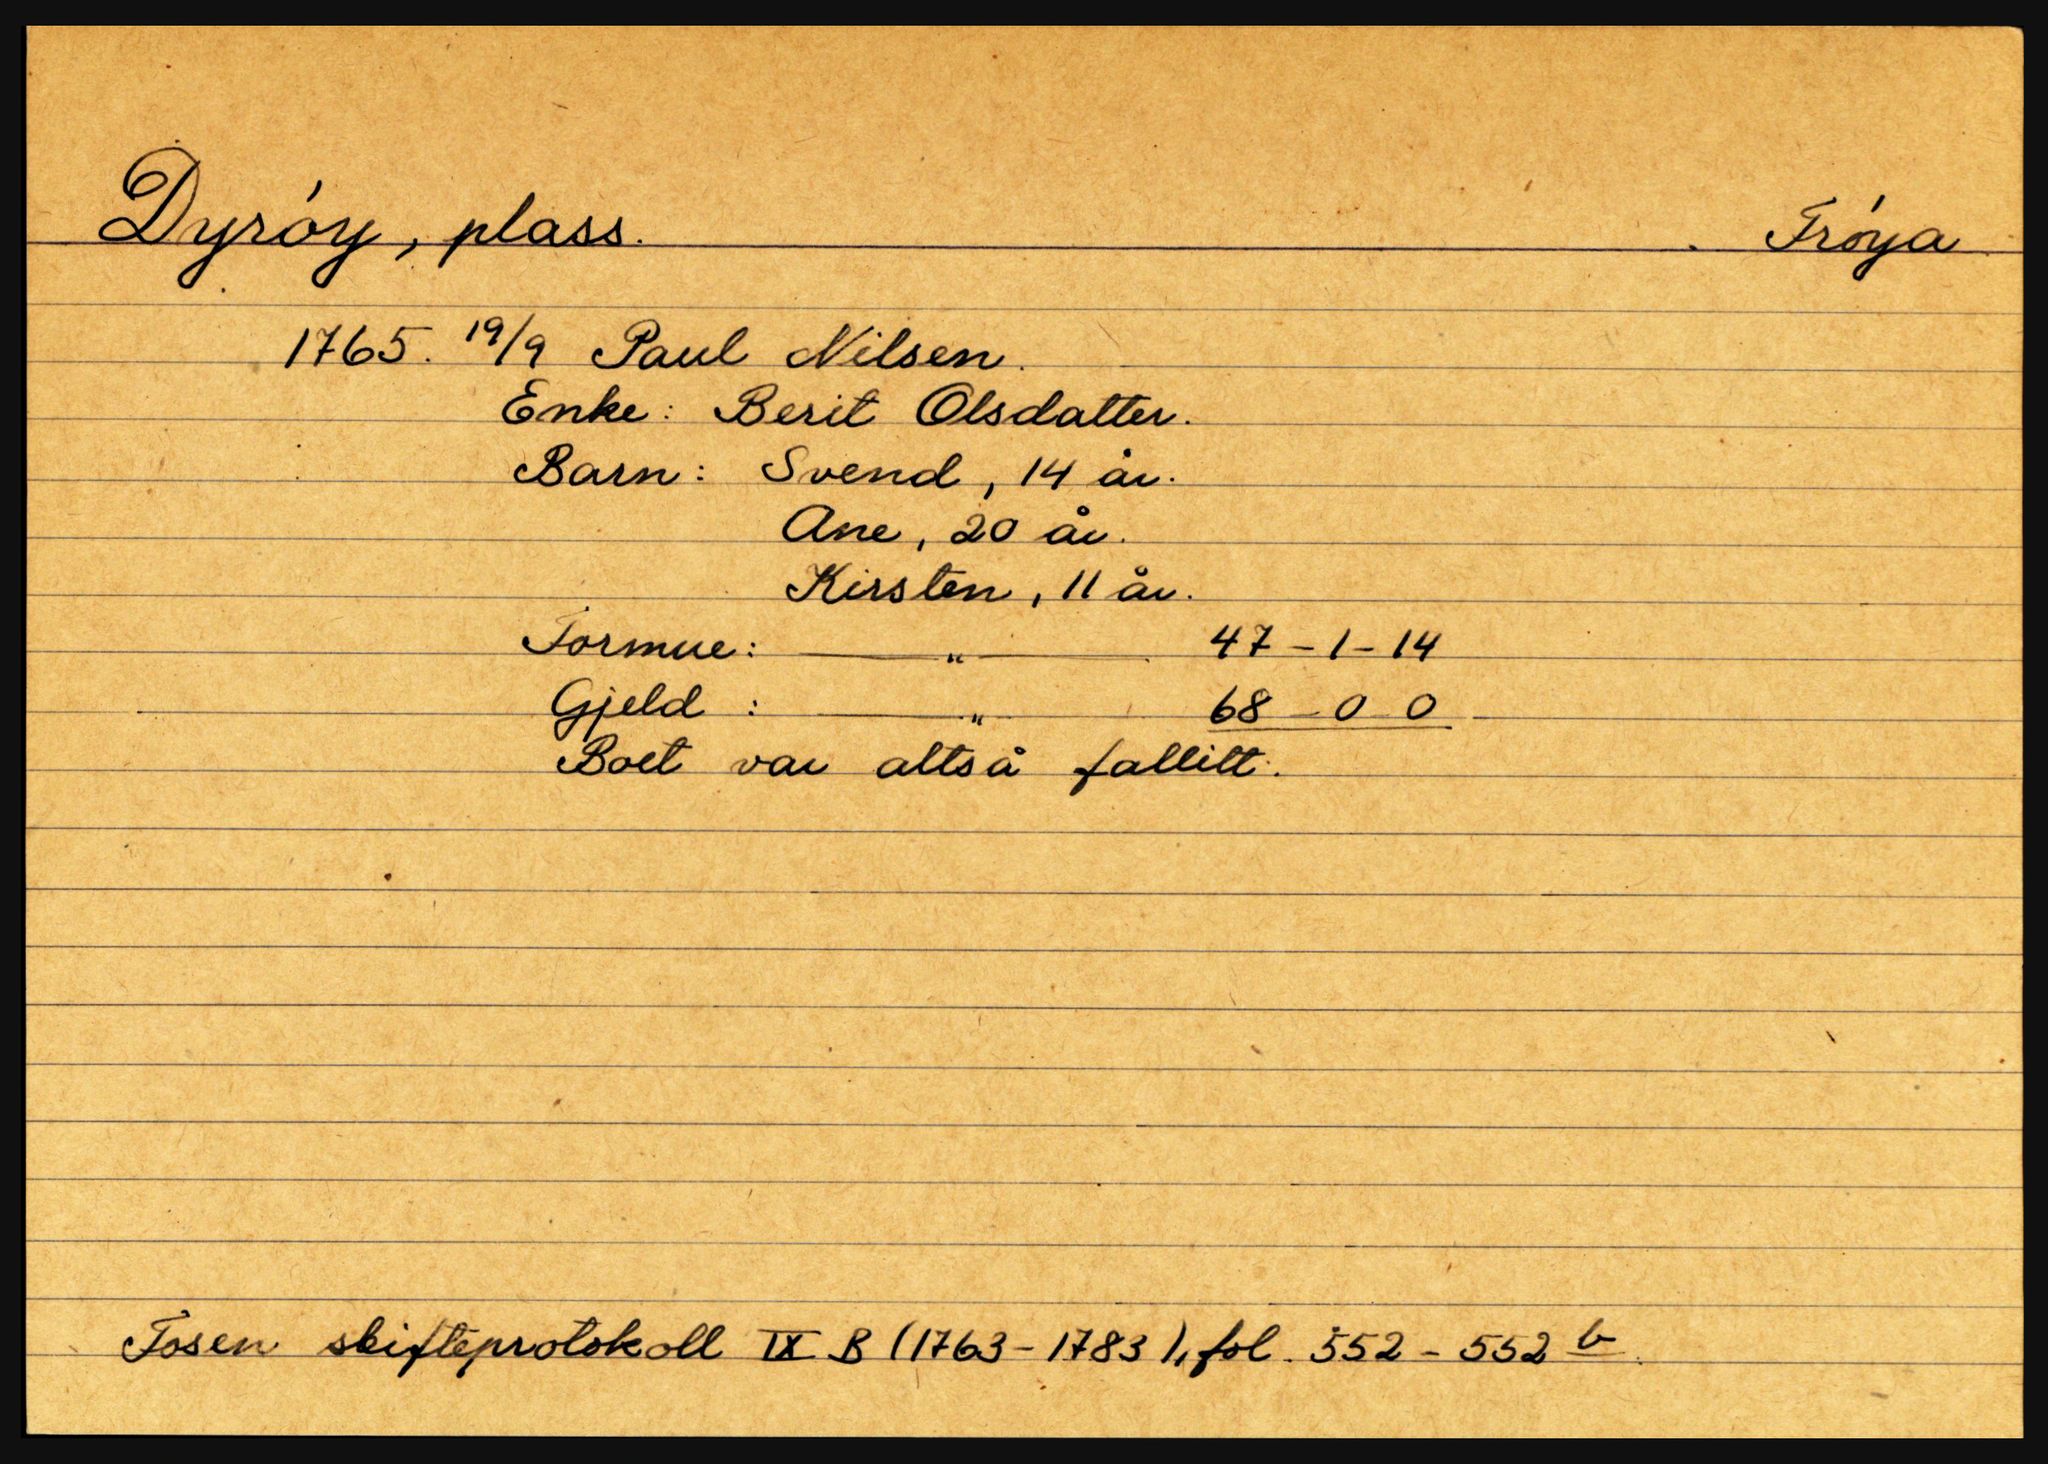 Dyróy, plass. Fróya
1765. 19/9 Paul Nilsen.
Enke: Berit Olsdatter.
Barn: Svend, 14 år.
Ane, 20 år.
Kirsten, 11 år.
Formue: — " — 47 - 1 - 14
Gjeld : — " — 68 - 0 - 0
Boet var altså fallitt.
Fosen skifteprotokoll IX B (1763 - 1783), fol. 552 - 552 b.